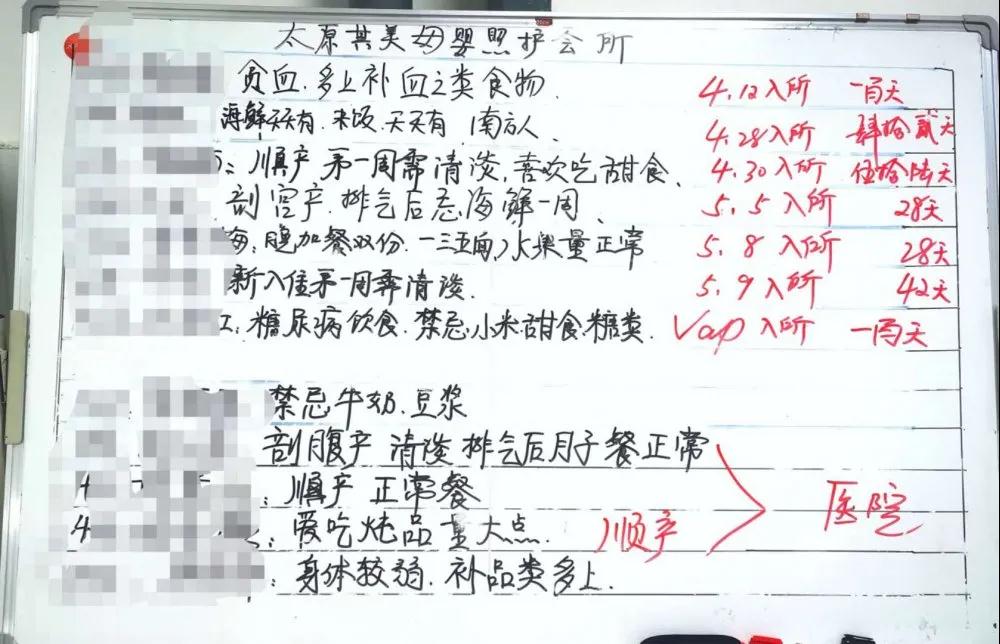 太原其美母婴照护会所
贫血.多上补血之类食物. 4.12入所 一百天
海鲜天天有.米饭.天天有 南方人 4.28入所 肆拾贰天
:顺产 第一周需清淡,喜欢吃甜食、 4.30入所 伍拾陆天
剖宫产.排气后忌海鲜一周、 5.5入所 28天
晚加餐双份.一三五 水果量正常 5.8入所 28天
新入住第一周需清淡. 5.9入所 42天
红:糖尿病饮食.禁忌小米甜食.糖类. Vap入所 一百天
禁忌牛奶.豆浆
剖腹产 清淡 排气后月子餐正常
4 :顺产 正常餐 医院
4 :爱吃炖品量大点. 顺产
:身体较弱.补品类多上.